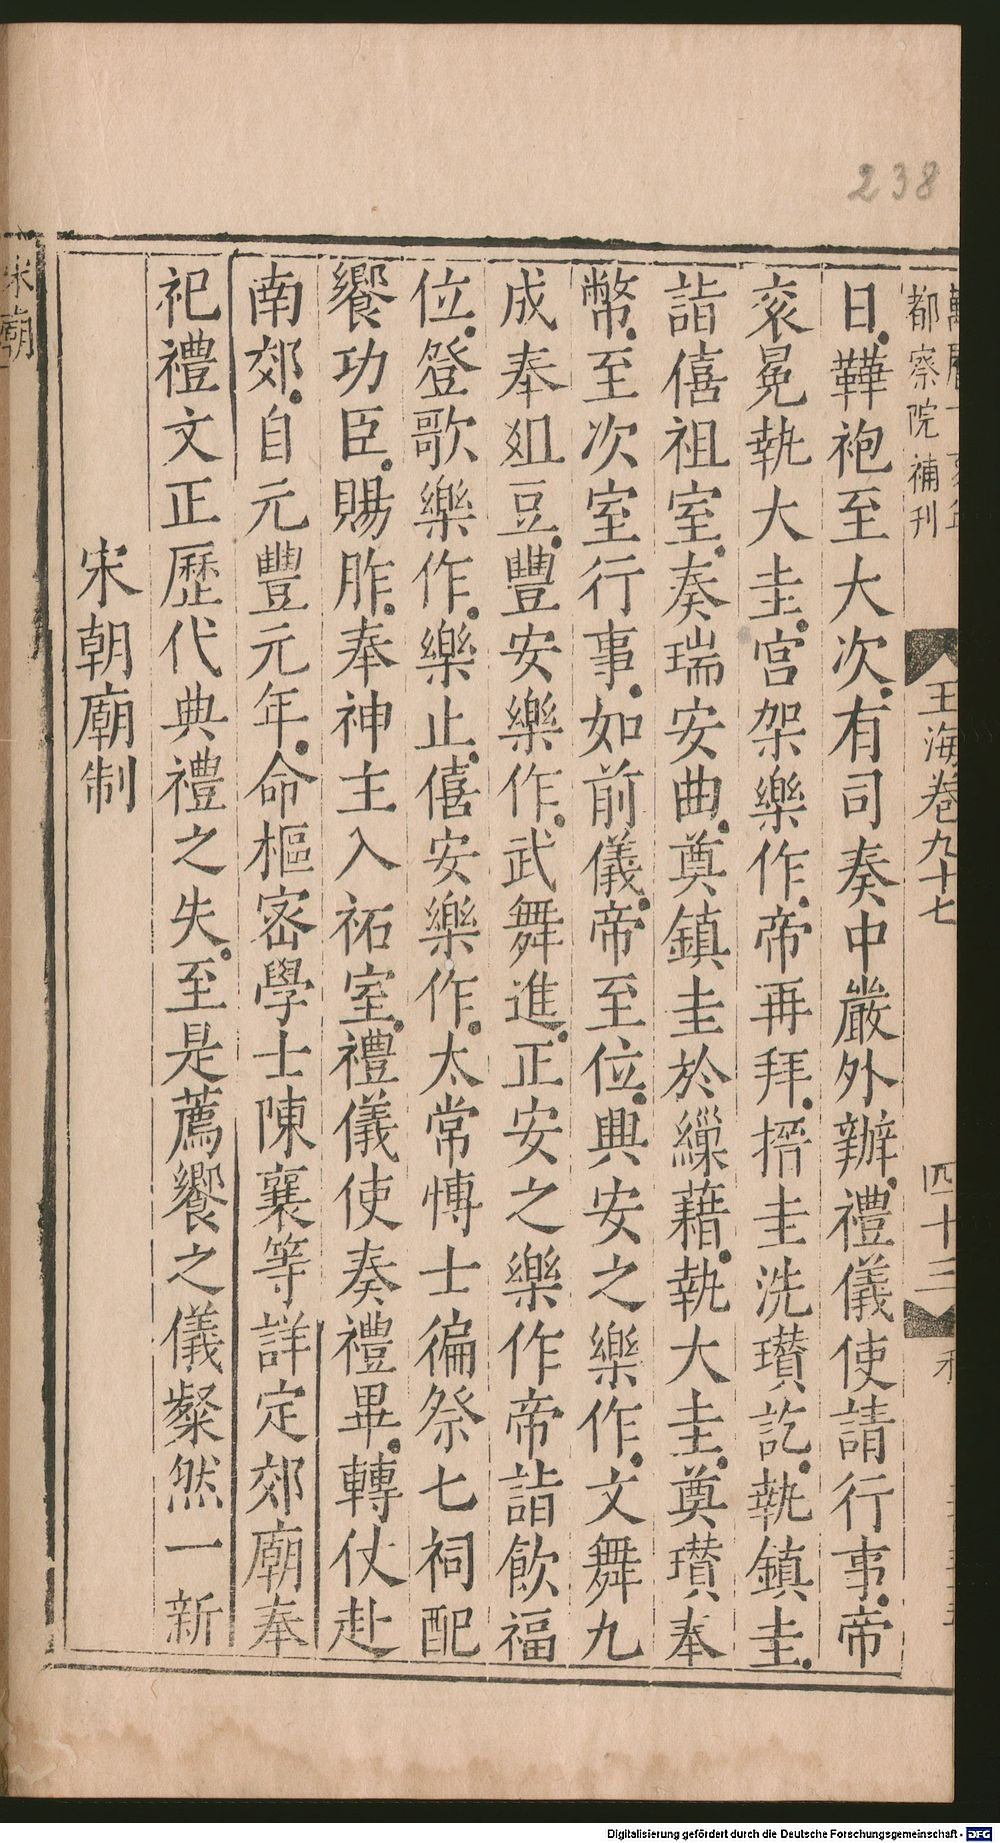 238
都察院補刊
玉海卷九十七
四十三
日鞾袍至大次有司奏中嚴外辦禮儀使請行事帝
衮冕執大圭宮架樂作帝再拜搢圭洗瓚訖執鎮圭
詣僖祖室奏瑞安曲奠鎮圭於繅藉執大圭奠瓚奉
幣至次室行事如前儀帝至位興安之樂作文舞九
成奉俎豆豐安樂作武舞進正安之樂作帝詣飲福
位登歌樂作樂止僖安樂作太常博士徧祭七祠配
饗功臣賜胙奉神主入祏室禮儀使奏禮畢轉仗赴
南郊自元豐元年命樞密學士陳襄等詳定郊廟奉
祀禮文正歷代典禮之失至是薦饗之儀粲然一新
宋朝廟制
宋廟
Digitalisierung gefördert durch die Deutsche Forschungsgemeinschaft - DFG